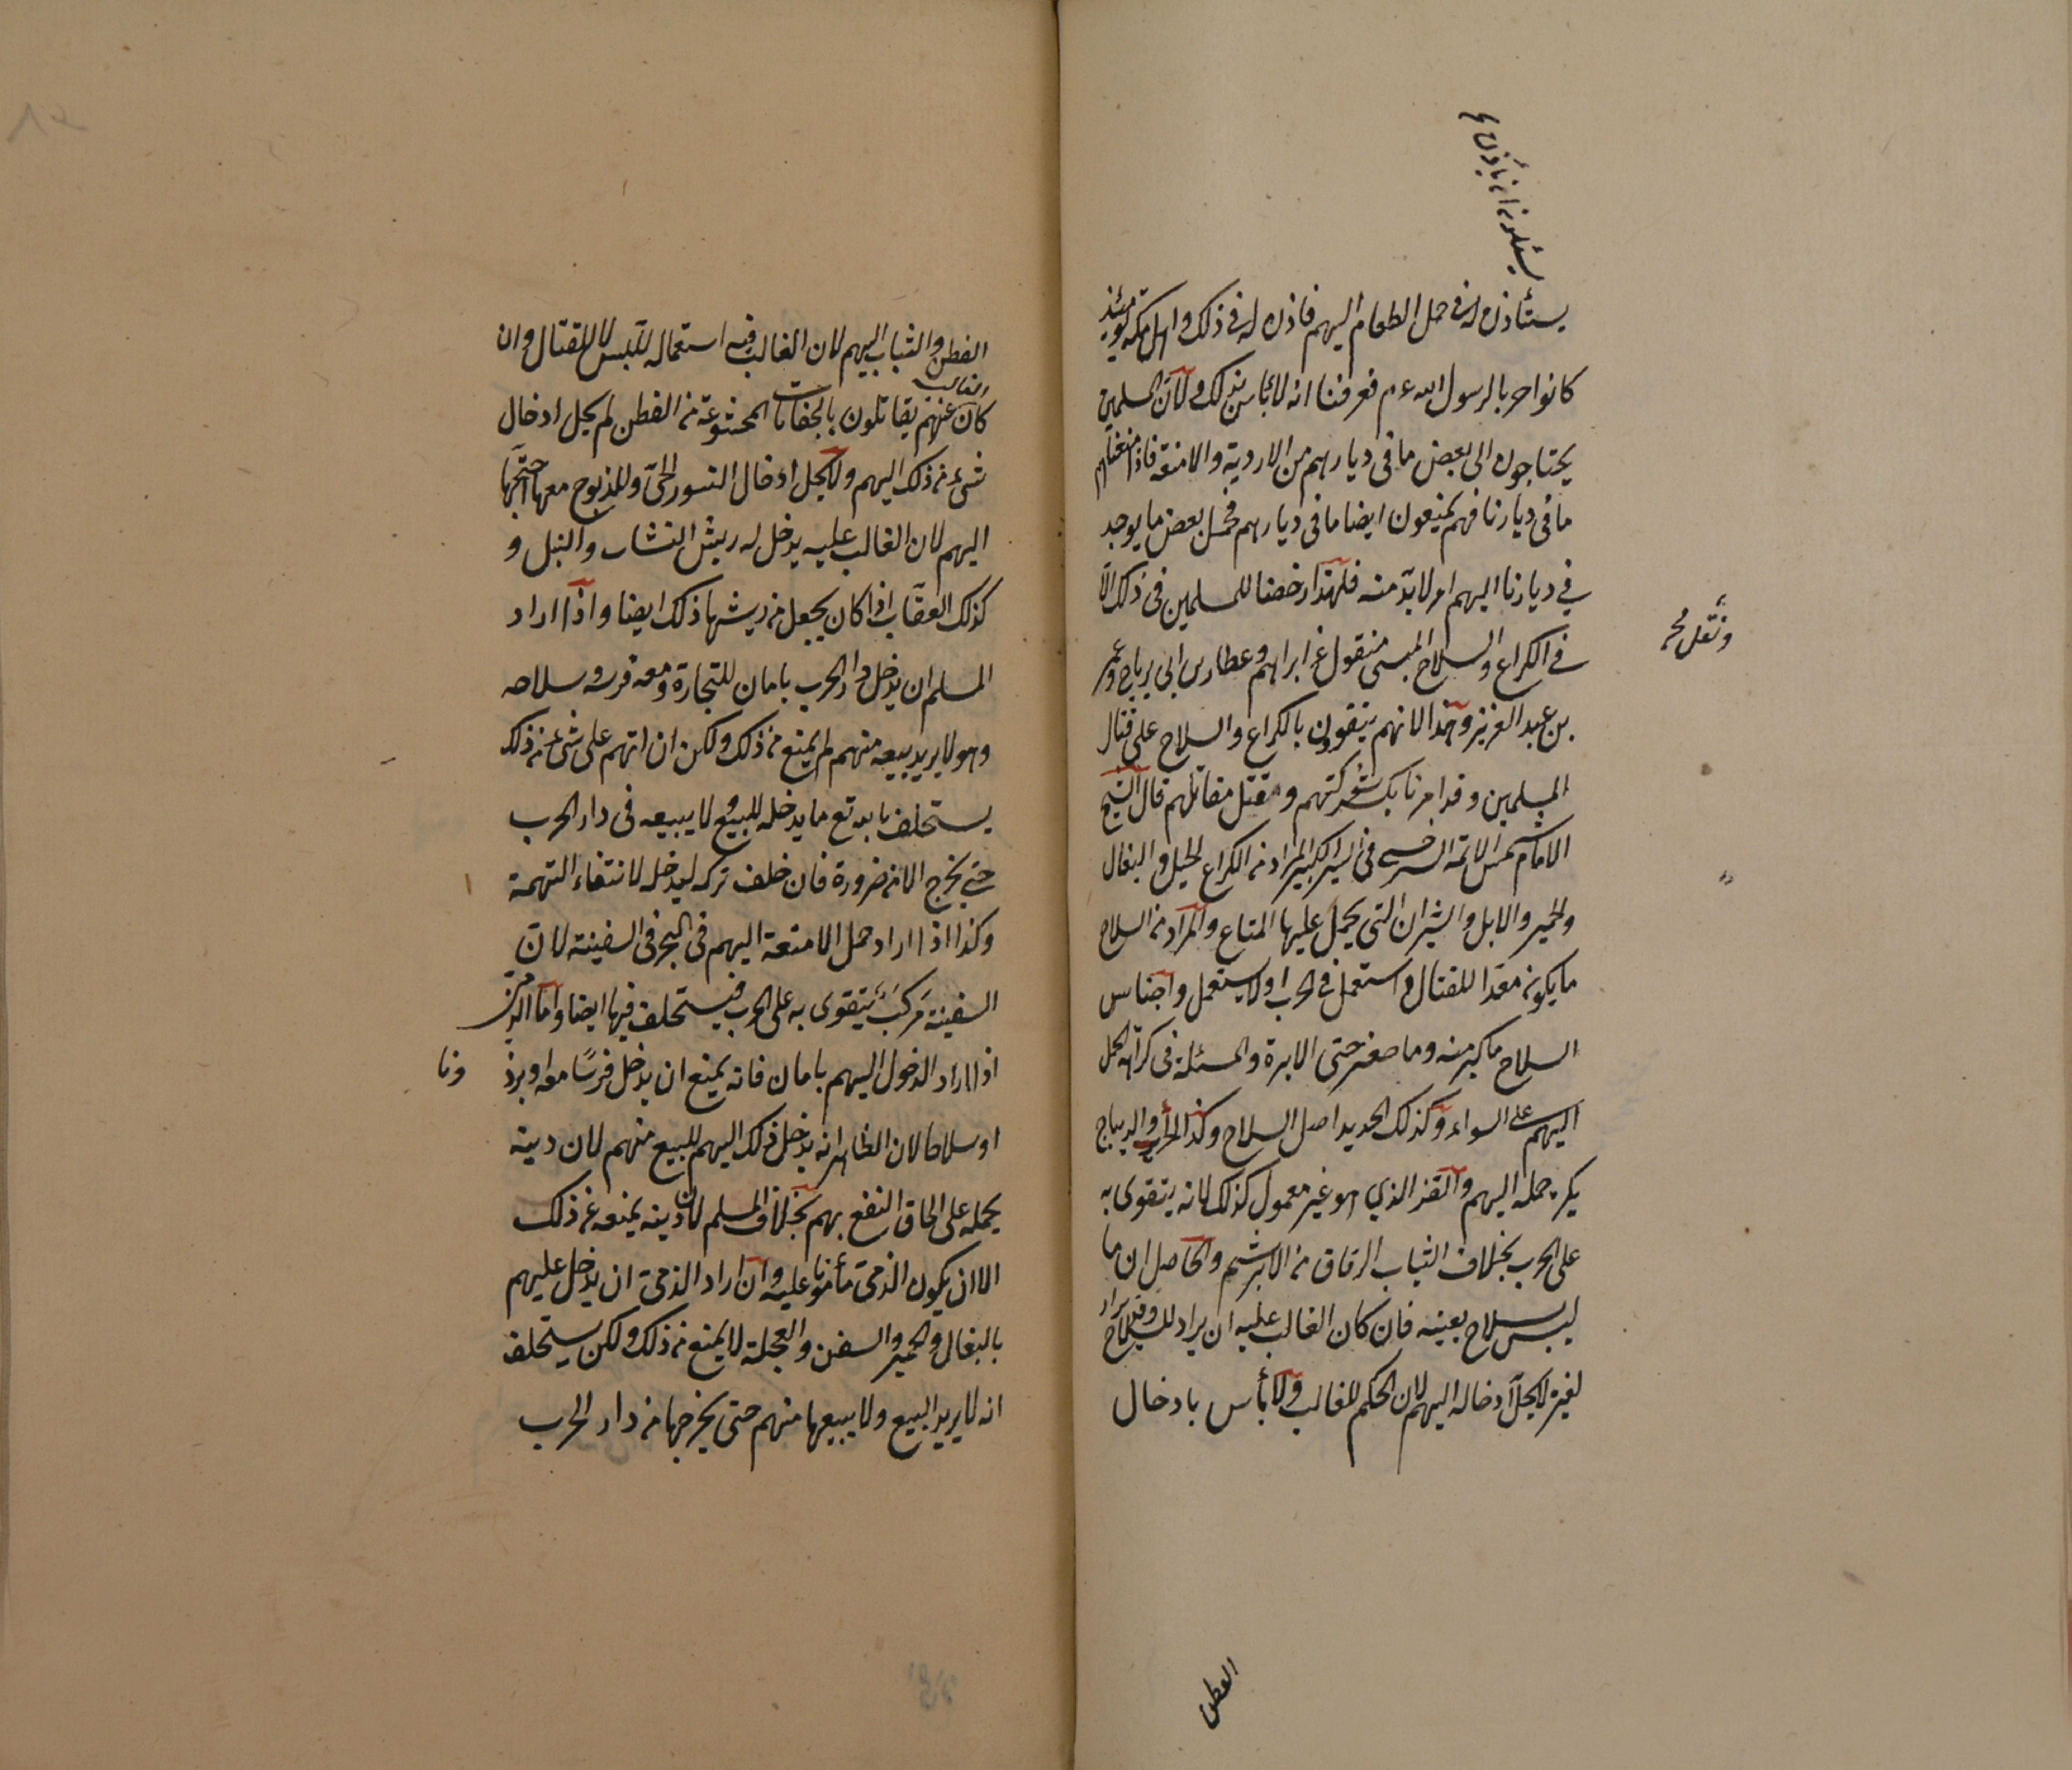 يسئلونه ان يأذن له
يستأذن له فى حمل الطعام اليهم فاذن له فى ذلك واهل مكة يومئذ
كانوا حربا لرسول الله عم فعرفنا انه لا بأس بذلك ولان المسلمين
يحتاجون الى بعض ما فى ديارهم من الادوية والامتعة فاذا منعناهم
ما فى ديارنا فهم يمنعون ايضا ما فى ديارهم فحمل بعض ما يوجد
في ديارنا اليهم امر لابد منه فلهذا رخصنا للمسلمين فى ذلك الا
في الكراع والسلاح والسبى منقول عن ابراهيم وعطا بن ابي رباح وعمر
بن عبد العزيز وهذا لانهم يتقوون بالكراع والسلاح على قتال
المسلمين وقد امرنا بكسر شوكتهم وقتل مقاتلهم قال الشيخ
الامام شمس الائمة السرخسي فى السير الكبير المراد من الكراع الخيل والبغال
والحمير والابل والثيران التى يحمل عليها المتاع والمراد من السلاح
ما يكون معدا للقتال استعمل في الحرب او لا يستعمل واجناس
السلاح ما كبر منه وما صغر حتى الابرة والمسئلة فى كراهة الحمل
اليهم على السواء وكذلك الحديد اصل السلاح وكذا الحرير والديباج
يكره حمله اليهم والقز الذي هو غير معمول كذلك لانه يتقوى به
على الحرب بخلاف الثياب الرقاق من الابريشم والحاصل ان ما
ليس بسلاح بعينه فان كان الغالب عليه ان يراد للسلاح وقد يراد
لغيره لا يحل ادخاله اليهم لان الحكم للغالب ولا بأس بادخال
القطن
القطن والثياب اليهم لان الغالب فيه استعماله للبس لا للقتال وان
كان الغالب عنهم يقاتلون بالخفتانات المحشوة من القطن لم يحل ادخال
شيء من ذلك اليهم ولا يحل ادخال النسور الحى والمذبوح معها اجنحتها
اليهم لان الغالب عليه يدخل له ريش النشاب والنبل و
كذلك العقاب اذا كان يجعل من ريشها ذلك ايضا واذا اراد
المسلم ان يدخل دار الحرب بامان للتجارة ومعه فرسه وسلاحه
وهو لا يريد بيعه منهم لم يمنع من ذلك ولكن ان اتهم على شيء من ذلك
يستحلف بالله تع ما يدخله للبيع ولا يبيعه فى دار الحرب
حتى يخرج الا من ضرورة فان حلف تركه ليدخله لانتفاء التهمة
وكذا اذا اراد حمل الامتعة اليهم فى البحر فى السفينة لان
السفينة مركب يتقوى به على الحرب فيستحلف فيها ايضا واما الذمى
اذا اراد الدخول اليهم بامان فانه يمنع ان يدخل فرسا معه او برذ
ونا
او سلاحا لان الظاهر انه يدخل ذلك اليهم للبيع منهم لان دينه
يحمله على الحاق النفع بهم بخلاف المسلم لان دينه يمنعه عن ذلك
الا ان يكون الذمى مأمونا عليه وان اراد الذمى ان يدخل عليهم
بالبغال والحمير والسفن والعجلة لا يمنع من ذلك ولكن يستحلف
انه لا يريد البيع ولا يبيعها منهم حتى يخرجها من دار الحرب